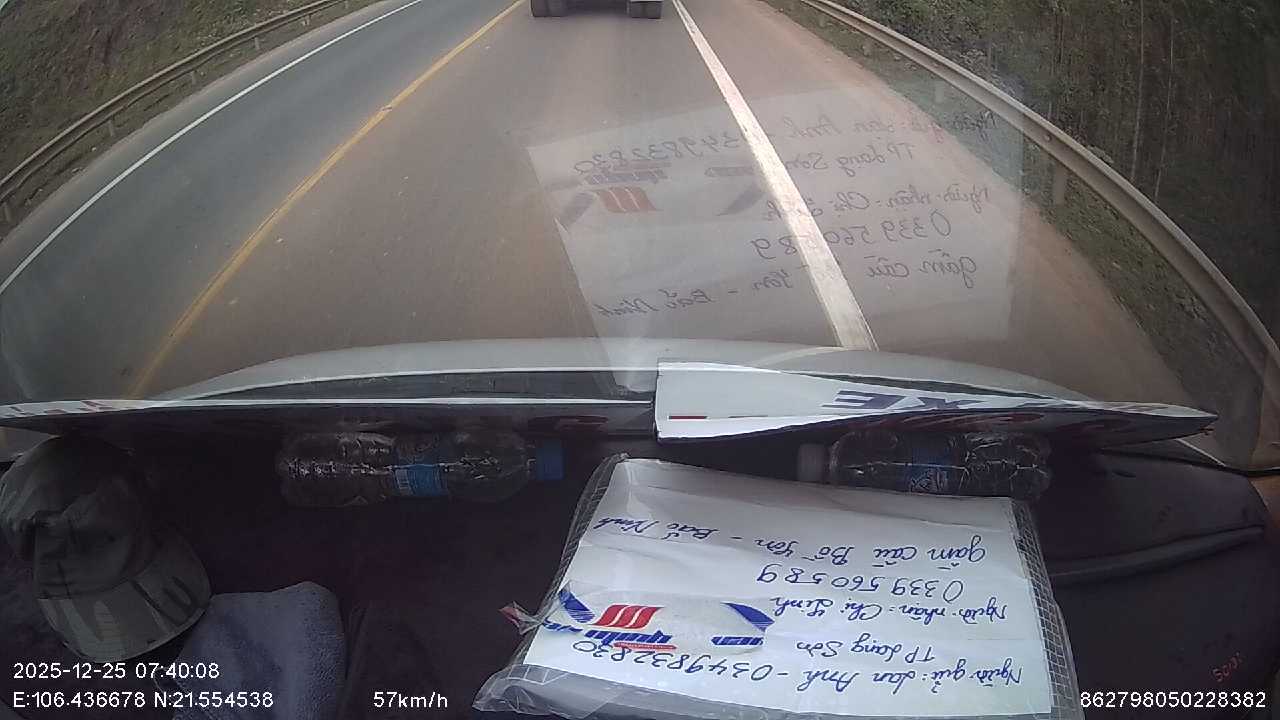 Người gửi: Lan Anh - 0349832820
TP Lạng Sơn
Người nhận: Chị Linh
0339560589
gầm cầu Bồ Sơn - Bắc Ninh
XE
2025-12-25 07:40:08
E:106.436678 N:21.554538 57km/h 862798050228382